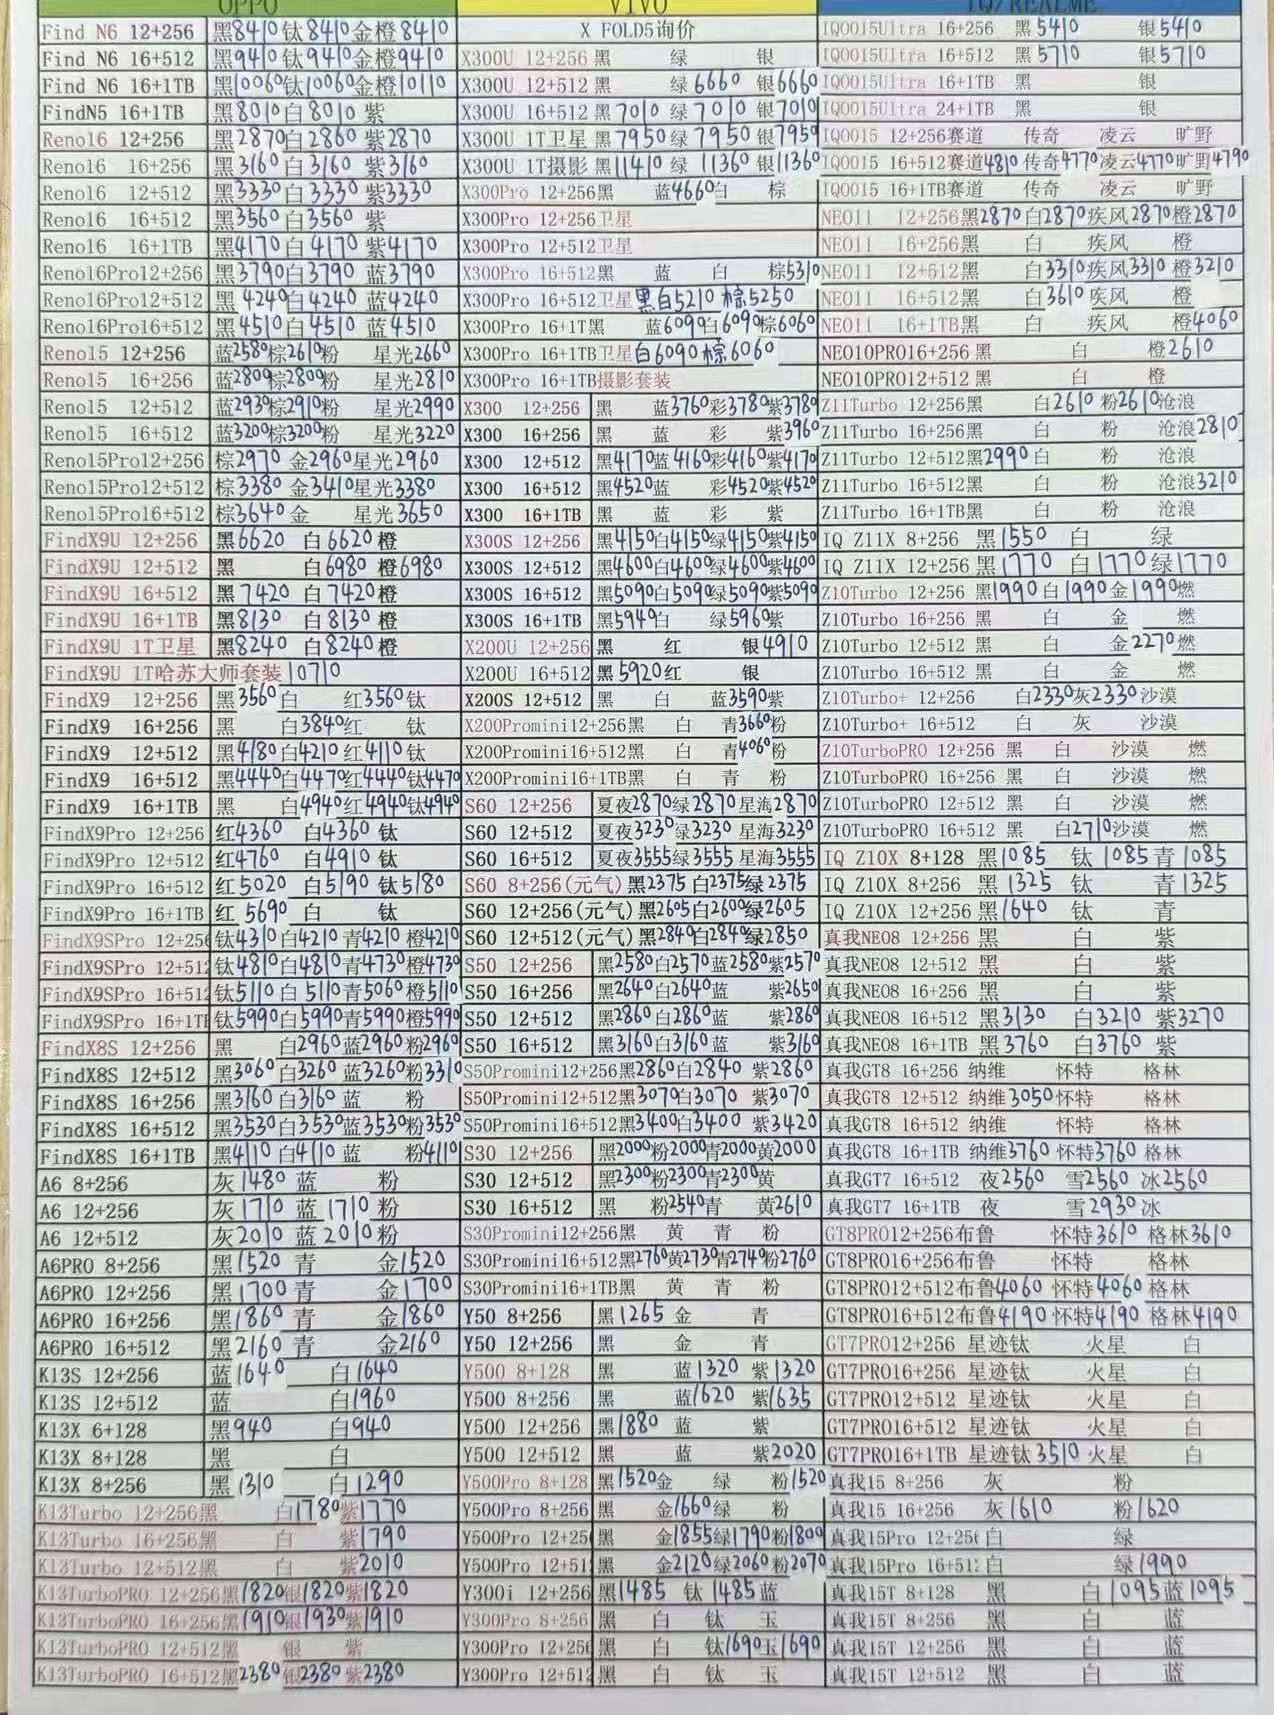 OPPO VIVO IQ/REALME
Find N6 12+256 黑8410钛8410金橙8410 X FOLD5询价 IQOO15Ultra 16+256 黑5410 银5410
Find N6 16+512 黑9410钛9410金橙9410 X300U 12+256 黑 绿 银 IQOO15Ultra 16+512 黑5710 银5710
Find N6 16+1TB 黑10060钛10060金橙10110 X300U 12+512 黑 绿6660 银6660 IQOO15Ultra 16+1TB 黑 银
FindN5 16+1TB 黑8010白8010 紫 X300U 16+512 黑7010 绿7010 银7010 IQOO15Ultra 24+1TB 黑 银
Reno16 12+256 黑2870白2860 紫2870 X300U 1T卫星 黑7950绿7950银7950 IQOO15 12+256赛道 传奇 凌云 旷野
Reno16 16+256 黑3160白3160 紫3160 X300U 1T摄影 黑11410绿11360银11360 IQOO15 16+512赛道4810传奇4770凌云4770旷野4790
Reno16 12+512 黑3330白3330紫3330 X300Pro 12+256黑 蓝4660白 棕 IQOO15 16+1TB赛道 传奇 凌云 旷野
Reno16 16+512 黑3560白3560 紫 X300Pro 12+256卫星 NEO11 12+256黑2870白2870疾风2870橙2870
Reno16 16+1TB 黑4170白4170紫4170 X300Pro 12+512卫星 NEO11 16+256黑 白 疾风 橙
Reno16Pro12+256 黑3790白3790蓝3790 X300Pro 16+512黑 蓝 白 棕5310 NEO11 12+512黑 白3310疾风3310橙3210
Reno16Pro12+512 黑4240白4240蓝4240 X300Pro 16+512卫星黑白5210棕5250 NEO11 16+512黑 白3610疾风 橙
Reno16Pro16+512 黑4510白4510蓝4510 X300Pro 16+1T黑 蓝6090白6090棕6060 NEO11 16+1TB黑 白 疾风 橙4060
Reno15 12+256 蓝2580棕2610粉 星光2660 X300Pro 16+1TB卫星白6090棕6060 NEO10PRO16+256 黑 白 橙2610
Reno15 16+256 蓝2800棕2800粉 星光2810 X300Pro 16+1TB摄影套装 NEO10PRO12+512 黑 白 橙
Reno15 12+512 蓝2930棕2910粉 星光2990 X300 12+256 黑 蓝3760彩3780紫3780 Z11Turbo 12+256黑 白2610粉2610沧浪
Reno15 16+512 蓝3200棕3200粉 星光3220 X300 16+256 黑 蓝 彩 紫3960 Z11Turbo 16+256黑 白 粉 沧浪2810
Reno15Pro12+256 棕2970 金2960星光2960 X300 12+512 黑4170蓝4160彩4160紫4170 Z11Turbo 12+512黑2990白 粉 沧浪
Reno15Pro12+512 棕3380 金3410星光3380 X300 16+512 黑4520蓝 彩4520紫4520 Z11Turbo 16+512黑 白 粉 沧浪3210
Reno15Pro16+512 棕3640金 星光3650 X300 16+1TB 黑 蓝 彩 紫 Z11Turbo 16+1TB黑 白 粉 沧浪
FindX9U 12+256 黑6620 白6620橙 X300S 12+256 黑4150白4150绿4150紫4150 IQ Z11X 8+256 黑1550 白 绿
FindX9U 12+512 黑 白6980 橙6980 X300S 12+512 黑4600白4600绿4600紫4600 IQ Z11X 12+256 黑1770 白1770绿1770
FindX9U 16+512 黑7420 白7420橙 X300S 16+512 黑5090白5090绿5090紫5090 Z10Turbo 12+256 黑1990白1990金1990燃
FindX9U 16+1TB 黑8130 白8130橙 X300S 16+1TB 黑5940白 绿5960紫 Z10Turbo 16+256 黑 白 金 燃
FindX9U 1T卫星 黑8240 白8240橙 X200U 12+256 黑 红 银4910 Z10Turbo 12+512 黑 白 金2270燃
FindX9U 1T哈苏大师套装10710 X200U 16+512 黑5920红 银 Z10Turbo 16+512 黑 白 金 燃
FindX9 12+256 黑3560白 红3560钛 X200S 12+512 黑 白 蓝3590紫 Z10Turbo+ 12+256 白2330灰2330沙漠
FindX9 16+256 黑 白3840红 钛 X200Promini12+256黑 白 青3660粉 Z10Turbo+ 16+512 白 灰 沙漠
FindX9 12+512 黑4180白4210红4110钛 X200Promini16+512黑 白 青4060粉 Z10TurboPRO 12+256 黑 白 沙漠 燃
FindX9 16+512 黑4440白4470红4440钛4470 X200Promini16+1TB黑 白 青 粉 Z10TurboPRO 16+256 黑 白 沙漠 燃
FindX9 16+1TB 黑 白4940红4940钛4940 S60 12+256 夏夜2870绿2870星海2870 Z10TurboPRO 12+512 黑 白 沙漠 燃
FindX9Pro 12+256 红4360 白4360钛 S60 12+512 夏夜3230绿3230星海3230 Z10TurboPRO 16+512 黑 白2710沙漠 燃
FindX9Pro 12+512 红4760 白4910钛 S60 16+512 夏夜3555绿3555星海3555 IQ Z10X 8+128 黑1085 钛1085青1085
FindX9Pro 16+512 红5020 白5190钛5180 S60 8+256(元气)黑2375白2375绿2375 IQ Z10X 8+256 黑1325 钛 青1325
FindX9Pro 16+1TB 红5690 白 钛 S60 12+256(元气)黑2605白2600绿2605 IQ Z10X 12+256 黑1640 钛 青
FindX9SPro 12+256 钛4310白4210青4210橙4210 S60 12+512(元气)黑2840白2840绿2850 真我NEO8 12+256 黑 白 紫
FindX9SPro 12+512 钛4810白4810青4730橙4730 S50 12+256 黑2580白2570蓝2580紫2570 真我NEO8 12+512 黑 白 紫
FindX9SPro 16+512 钛5110白5110青5060橙5110 S50 16+256 黑2640白2640蓝 紫2650 真我NEO8 16+256 黑 白 紫
FindX9SPro 16+1TB 钛5990白5990青5990橙5990 S50 12+512 黑2860白2860蓝 紫2860 真我NEO8 16+512 黑3130 白3210 紫3270
FindX8S 12+256 黑 白2960蓝2960粉2960 S50 16+512 黑3160白3160蓝 紫3160 真我NEO8 16+1TB 黑3760 白3760 紫
FindX8S 12+512 黑3060白3260蓝3260粉3310 S50Promini12+256黑2860白2840 紫2860 真我GT8 16+256 纳维 怀特 格林
FindX8S 16+256 黑3160白3160蓝 粉 S50Promini12+512黑3070白3070 紫3070 真我GT8 12+512 纳维3050怀特 格林
FindX8S 16+512 黑3530白3530蓝3530粉3530 S50Promini16+512黑3400白3400 紫3420 真我GT8 16+512 纳维 怀特 格林
FindX8S 16+1TB 黑4110白4110蓝 粉4110 S30 12+256 黑2000粉2000青2000黄2000 真我GT8 16+1TB 纳维3760怀特3760格林
A6 8+256 灰1480蓝 粉 S30 12+512 黑2300粉2300青2300黄 真我GT7 16+512 夜2560 雪2560冰2560
A6 12+256 灰1710蓝1710粉 S30 16+512 黑 粉2540青 黄2610 真我GT7 16+1TB 夜 雪2930冰
A6 12+512 灰2010蓝2010粉 S30Promini12+256黑 黄 青 粉 GT8PRO12+256布鲁 怀特3610格林3610
A6PRO 8+256 黑1520青 金1520 S30Promini16+512黑2760黄2730青2740粉2760 GT8PRO16+256布鲁 怀特 格林
A6PRO 12+256 黑1700青 金1700 S30Promini16+1TB黑 黄 青 粉 GT8PRO12+512布鲁4060怀特4060格林
A6PRO 16+256 黑1860青 金1860 Y50 8+256 黑1265金 青 GT8PRO16+512布鲁4190怀特4190格林4190
A6PRO 16+512 黑2160青 金2160 Y50 12+256 黑 金 青 GT7PRO12+256 星迹钛 火星 白
K13S 12+256 蓝1640 白1640 Y500 8+128 黑 蓝1320 紫1320 GT7PRO16+256 星迹钛 火星 白
K13S 12+512 蓝 白1960 Y500 8+256 黑 蓝1620 紫1635 GT7PRO12+512 星迹钛 火星 白
K13X 6+128 黑940 白940 Y500 12+256 黑1880蓝 紫 GT7PRO16+512 星迹钛 火星 白
K13X 8+128 黑 白 Y500 12+512 黑 蓝 紫2020 GT7PRO16+1TB 星迹钛3510火星 白
K13X 8+256 黑1310 白1290 Y500Pro 8+128 黑1520金 绿 粉1520 真我15 8+256 灰 粉
K13Turbo 12+256黑 白1780紫1770 Y500Pro 8+256 黑 金1660绿 粉 真我15 16+256 灰1610 粉1620
K13Turbo 16+256黑 白 紫1790 Y500Pro 12+256 黑 金1855绿1790粉1800 真我15Pro 12+256 白 绿
K13Turbo 12+512黑 白 紫2010 Y500Pro 12+512 黑 金2120绿2060粉2070 真我15Pro 16+512 白 绿1990
K13TurboPRO 12+256黑1820银1820紫1820 Y300i 12+256 黑1485 钛1485蓝 真我15T 8+128 黑 白1095蓝1095
K13TurboPRO 16+256黑1910银1930紫1910 Y300Pro 8+256 黑 白 钛 玉 真我15T 8+256 黑 白 蓝
K13TurboPRO 12+512黑 银 紫 Y300Pro 12+256 黑 白 钛1690玉1690 真我15T 12+256 黑 白 蓝
K13TurboPRO 16+512黑2380银2380紫2380 Y300Pro 12+512 黑 白 钛 玉 真我15T 12+512 黑 白 蓝